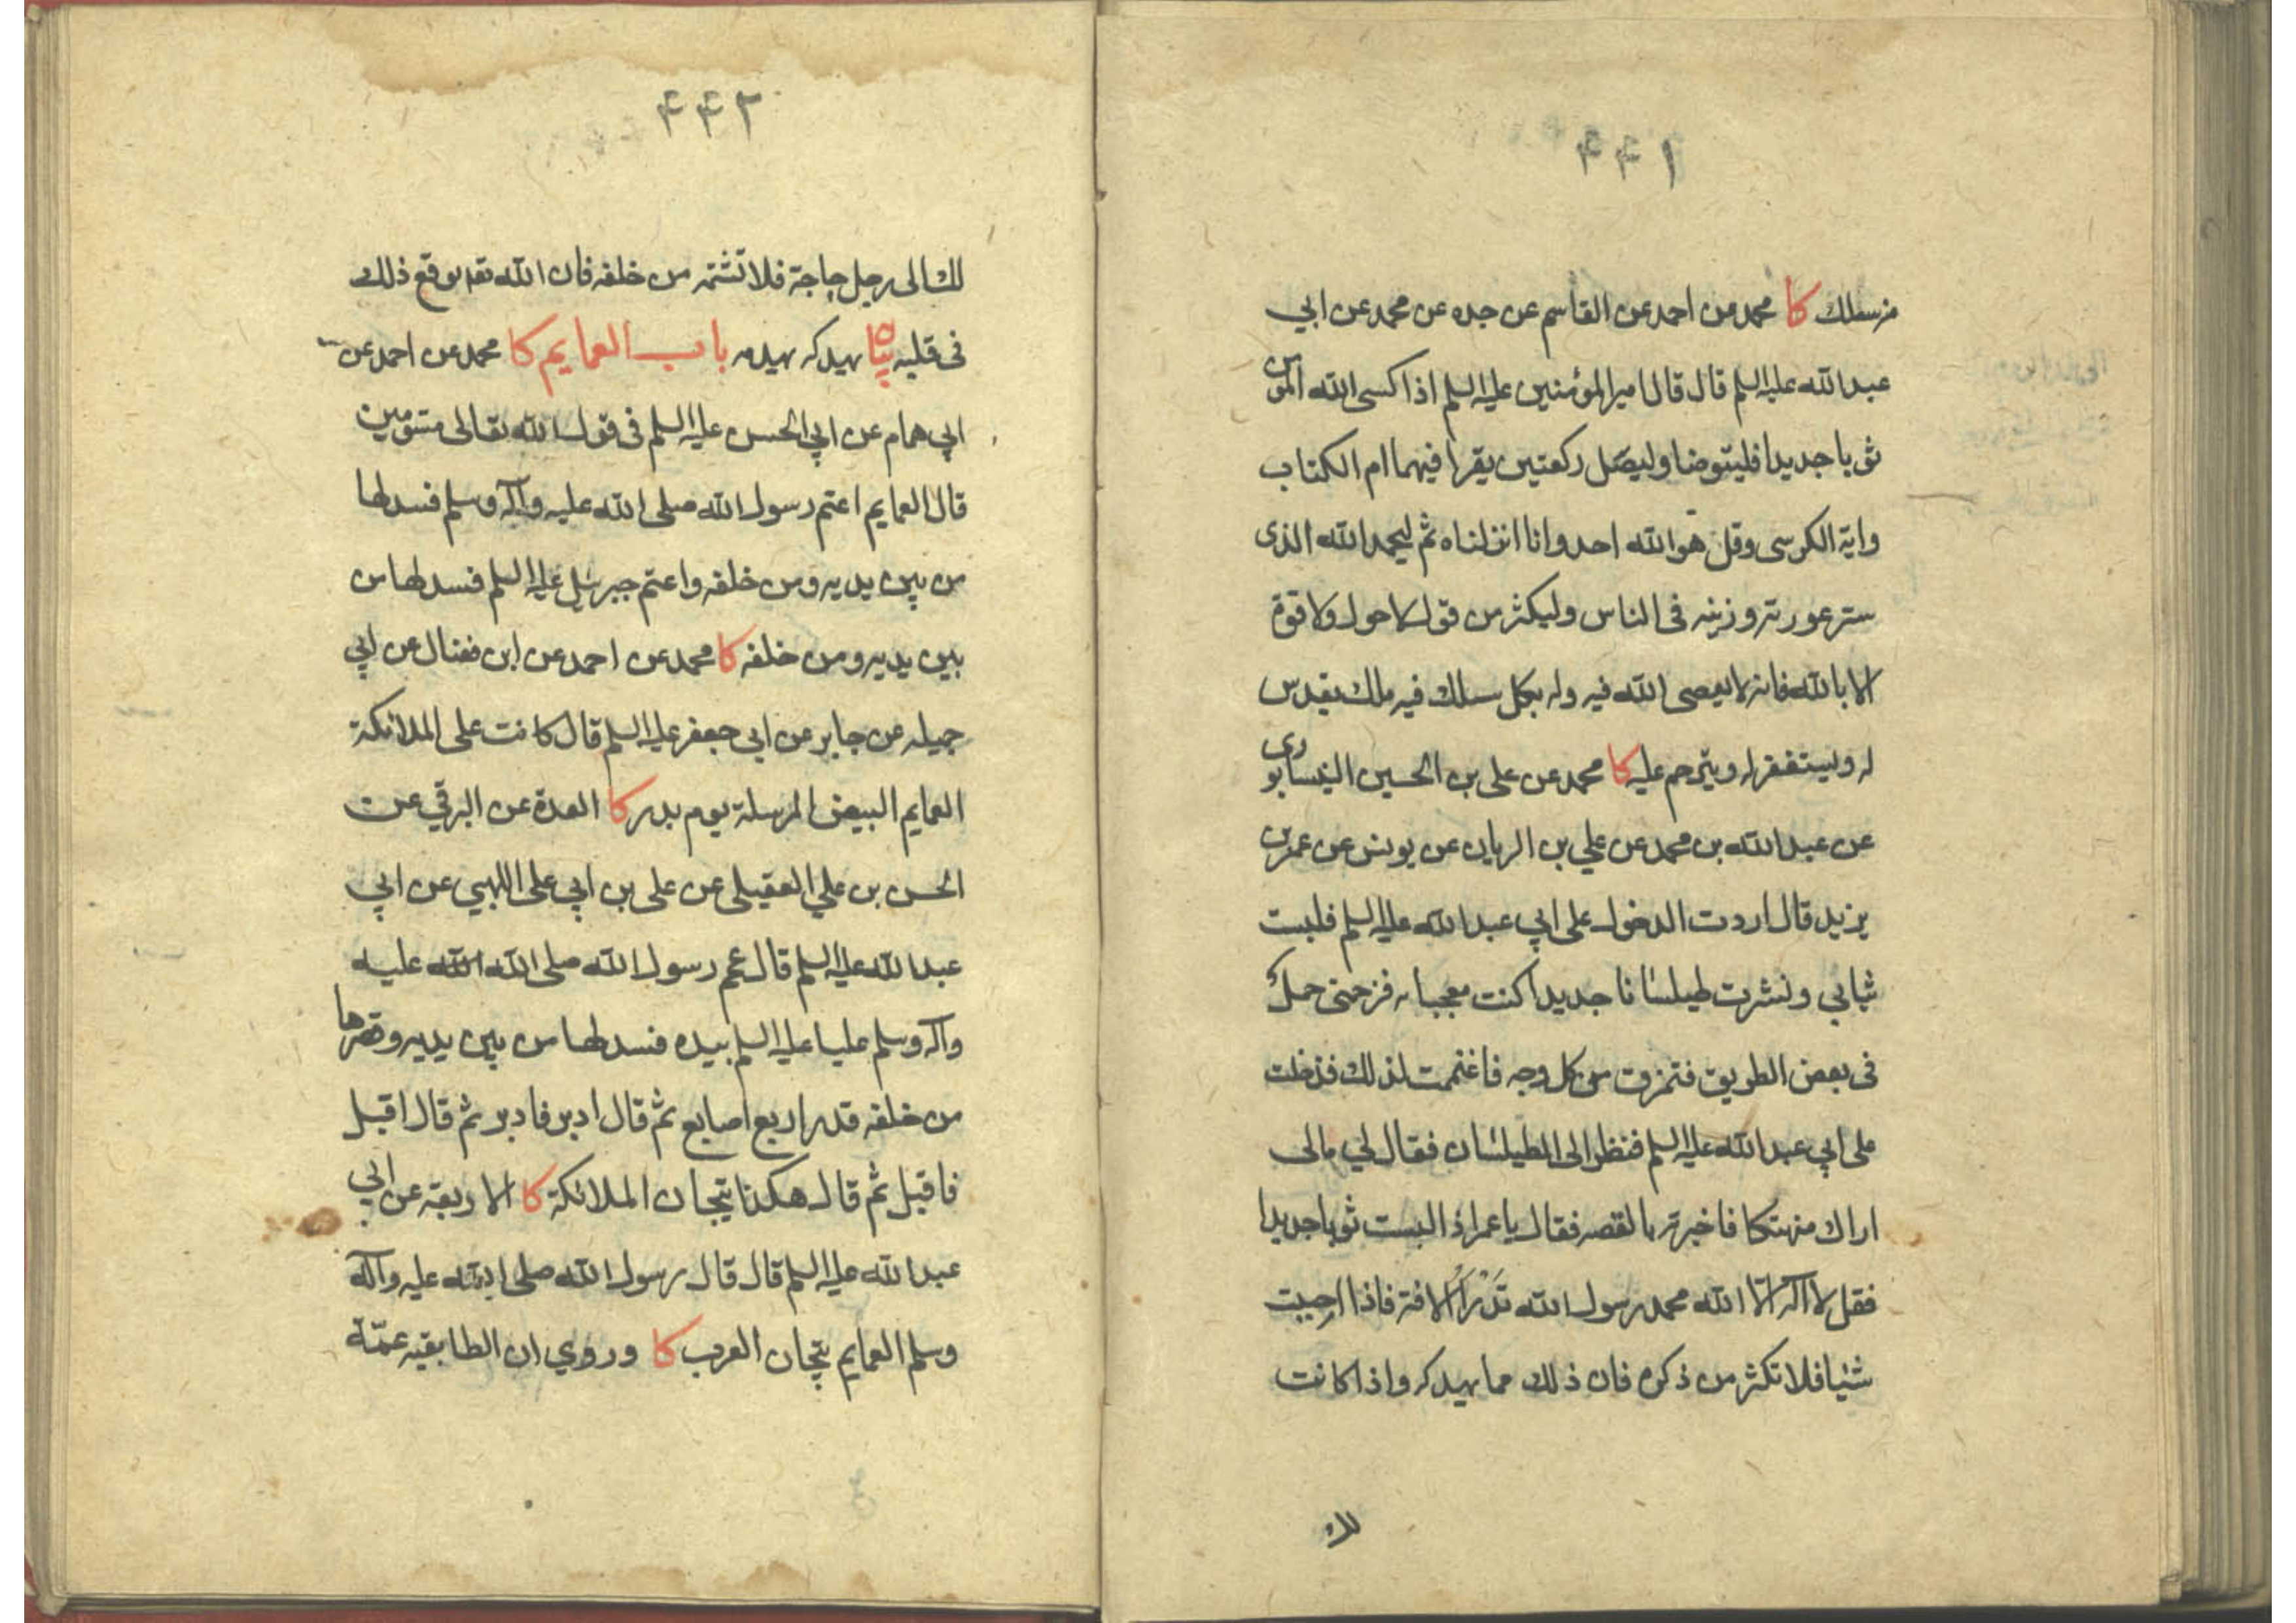 ٤٤١
من سلك كا محمد عن احمد عن القاسم عن جده عن محمد عن ابي
عبد الله عليه السلم قال قال امير المؤمنين عليه السلم اذا كسى الله المؤمن
ثوبا جديدا فليتوضا وليصل ركعتين يقرا فيهما ام الكتاب
واية الكرسى وقل هو الله احد وانا انزلناه ثم ليحمد الله الذى
ستر عورته وزينه فى الناس وليكثر من قول لا حول ولا قوة
الا بالله فانه لا يعصى الله فيه وله بكل سلك فيه ملك يقدس
له ويستغفر له ويترحم عليه كا محمد عن على بن الحسين النيسابورى
عن عبد الله بن محمد عن علي بن الريان عن يونس عن عمر بن
يزيد قال اردت الدخول على ابي عبد الله عليه السلم فلبست
ثيابي ونشرت طيلسانا جديدا كنت معجبا به فزحمنى جمل
فى بعض الطريق فتمزق من كل وجه فاغتممت لذلك فدخلت
على ابي عبد الله عليه السلم فنظر الى الطيلسان فقال لي مالى
اراك منهتكا فاخبرته بالقصه فقال يا عمر اذا لبست ثوبا جديدا
فقل لا اله الا الله محمد رسول الله تدرأ الافة فاذا احببت
شيئا فلا تكثر من ذكره فان ذلك مما يهدكه واذا كانت
لك
٤٤٢
لك الى رجل حاجة فلا تشتمه من خلفه فان الله تعه يوقع ذلك
فى قلبه يهدكه يهدمه باب العمايم كا محمد عن احمد عن
ابي همام عن ابي الحسن عليه السلم فى قول الله تعالى مسومين
قال العمايم اعتم رسول الله صلى الله عليه وآله وسلم فسدلها
من بين يديه ومن خلفه واعتم جبرئيل عليه السلم فسدلها من
بين يديه ومن خلفه كا محمد عن احمد عن ابن فضال عن ابي
جميله عن جابر عن ابي جعفر عليه السلم قال كانت على الملائكة
العمايم البيض المرسلة يوم بدر كا العدة عن البرقي عن
الحسن بن علي العقيلى عن على بن ابي على اللهبي عن ابي
عبد الله عليه السلم قال عمم رسول الله صلى الله الله عليه
وآله وسلم عليا عليه السلم بيده فسدلها من بين يديه وقصرها
من خلفه قدر اربع اصابع ثم قال ادبر فادبر ثم قال اقبل
فاقبل ثم قال هكذا تيجان الملائكة كا الاربعة عن ابي
عبد الله عليه السلم قال قال رسول الله صلى الله عليه وآله
وسلم العمايم تيجان العرب كا وروي ان الطابقيه عمّة